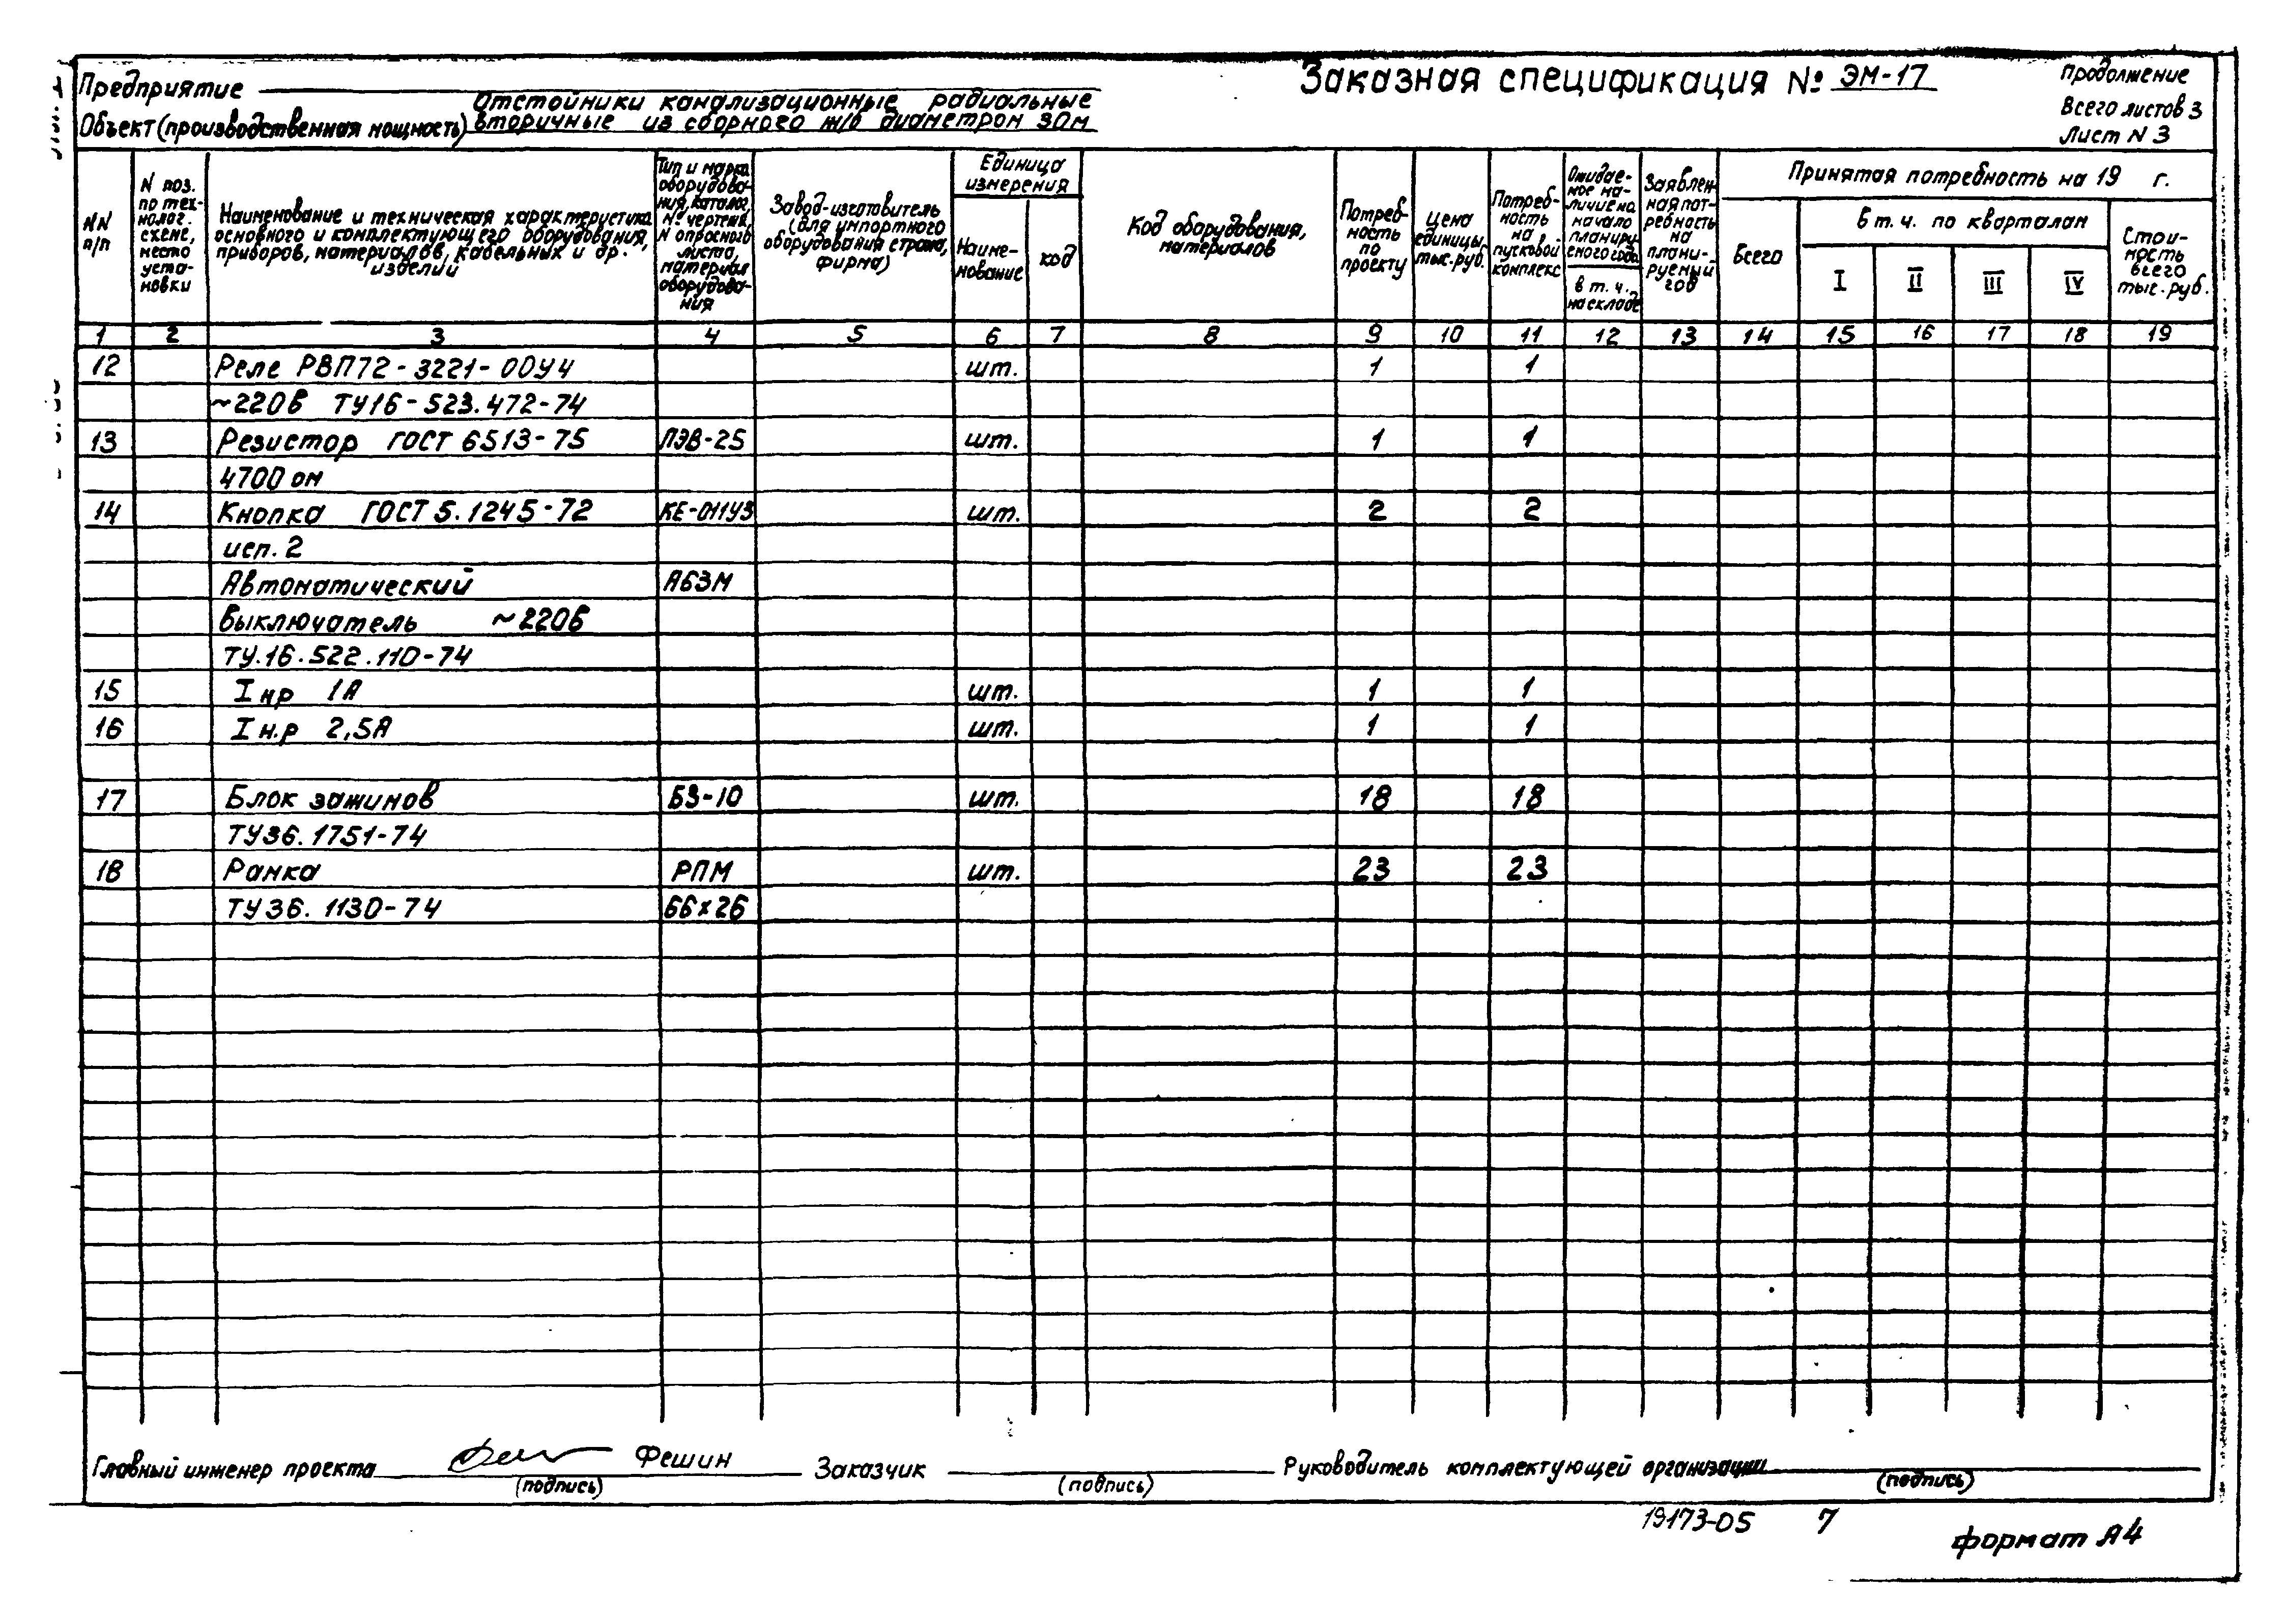 Предприятие
Заказная спецификация № ЭМ-17
Продолжение
Всего листов 3
Лист N 3
Отстойники канализационные радиальные
Объект (производственная мощность) вторичные из сборного ж/б диаметром 30м
NN
п/п
N поз.
по тех-
нолог.
схеме,
место
уста-
новки
Наименование и техническая характеристика
основного и комплектующего оборудования,
приборов, материалов, кабельных и др.
изделий
Тип и марка
оборудова-
ния, каталог,
№ чертежа,
N опросного
листа,
материал
оборудова-
ния
Завод-изготовитель
(для импортного
оборудования страна,
фирма)
Единица
измерения
Наиме-
нование
код
Код оборудования,
материалов
Потреб-
ность
по
проекту
Цена
единицы,
тыс.руб.
Потреб-
ность
на
пусковой
комплекс
Ожидае-
мое на-
личие на
начало
планиру-
емого года
в т. ч.
на складе
Заявлен-
ная пот-
ребность
на
плани-
руемый
год
Принятая потребность на 19 г.
Всего
в т. ч. по кварталам
I II III IV
Стои-
мость
всего
тыс. руб.
1 2 3 4 5 6 7 8 9 10 11 12 13 14 15 16 17 18 19
12 Реле РВП72-3221-00У4 шт. 1 1
~220В ТУ16-523.472-74
13 Резистор ГОСТ 6513-75 ПЭВ-25 шт. 1 1
4700 ом
14 Кнопка ГОСТ 5.1245-72 КЕ-011У3 шт. 2 2
исп. 2
Автоматический А63М
выключатель ~220В
ТУ.16.522.110-74
15 Iнр 1А шт. 1 1
16 Iн.р 2,5А шт. 1 1
17 Блок зажимов БЗ-10 шт. 18 18
ТУ36.1751-74
18 Рамка РПМ шт. 23 23
ТУ36.1130-74 66х26
Главный инженер проекта Фешин Заказчик Руководитель комплектующей организации
(подпись) (подпись) (подпись)
19173-05 7
формат А4